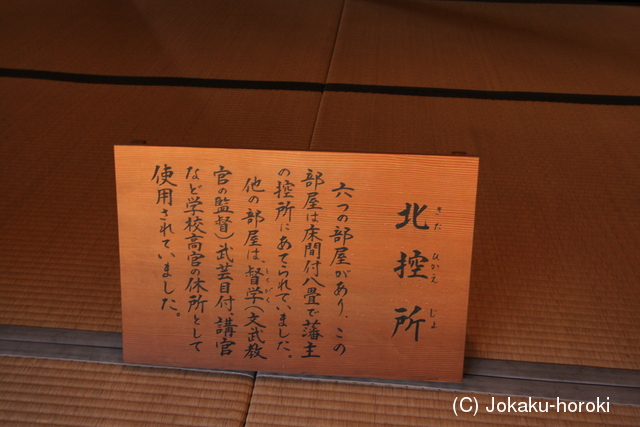 北控所
きた ひかえ じよ
六つの部屋があり、この
部屋は床間付八畳で藩主
の控所にあてられていました。
他の部屋は、督学(文武教
とくがく
官の監督)武芸目付、講官
など学校高官の休所として
使用されていました。
(C) Jokaku-horoki